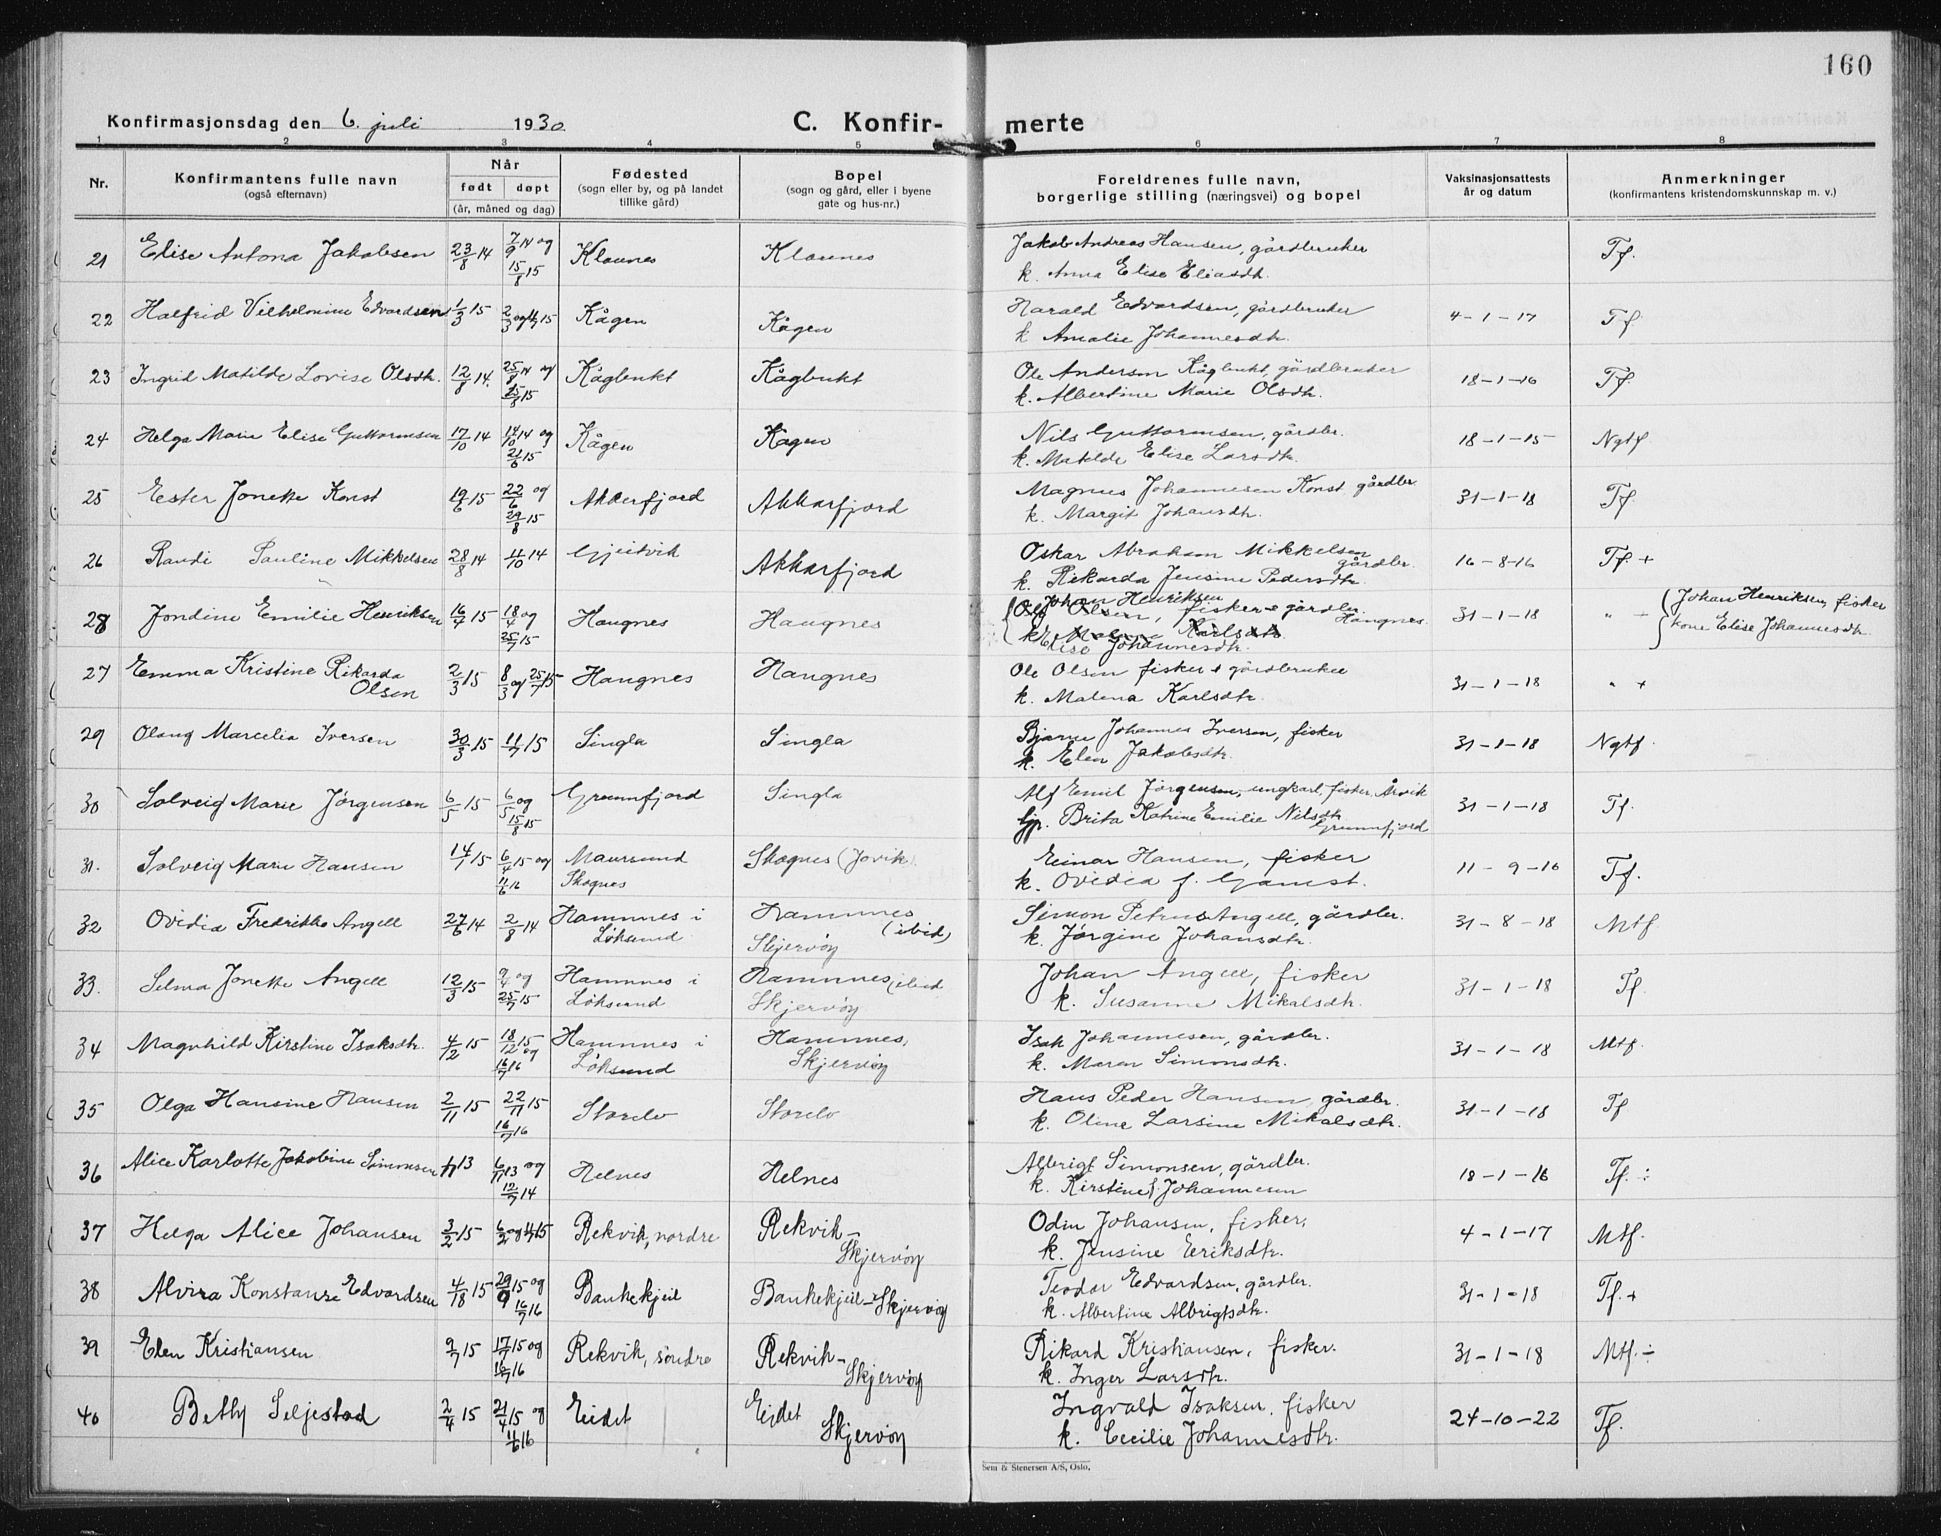 160
Konfirmasjonsdag den 6. juli 1930 C. Konfir- merte
1 2 3 4 5 6 7 8
Nr. Konfirmantens fulle navn (også efternavn) Når født døpt (år, måned og dag) Fødested (sogn eller by, og på landet tillike gård) Bopel (sogn og gård, eller i byene gate og hus-nr.) Foreldrenes fulle navn, borgerlige stilling (næringsvei) og bopel Vaksinasjonsattests år og datum Anmerkninger (konfirmantens kristendomskunnskap m. v.)
21 Elise Antona Jakobsen 23/8 14 7/9 14 og 15/8 15 Klaunes Klaunes Jakob Andreas Hansen, gårdbruker Tf.
k. Anna Elise Eliasdtr.
22 Halfrid Vilhelmine Edvardsen 1/3 15 Kågen Kågen Harald Edvardsen, gårdbruker 4-1-17 Tf
k Amalie Johannesdtr.
23 Ingrid Matilde Lovise Olsdtr. 12/8 14. 25/8 14 og 15/8 15 Kågbukt Kågbukt Ole Andersen Kågbukt, gårdbruker 18-1-16 Tf.
k. Albertine Marie Olsdtr.
24 Helga Marie Elise Guttormsen 17/10 14 og 21/6 15 Kågen Kagen Nils Guttormsen, gårdbr. 18-1-15 Ngtf
k. Matilde Elise Larsdtr.
25 Ester Jonette Konst 19/6 15 22/6 og 29/8 15 Akkerfjord Akkarfjord Magnus Johannesen Konst gårdbr 31-1-18 Tf
k. Margit Johansdtr.
26 Randi Pauline Mikkelsen 28/8 14 11/10 14 Gjeitvik Akkarfjord Oskar Abraham Mikkelsen gårdbr. 16-8-16 Tf. +
k. Rikarda Jensine Pedersdtr.
28 Jondine Emilie Henriksen 16/4 15 18/4 og 25/7 15 Haugnes Haugnes Johan Henriksen Ole Olsen, fisker & gårdbr. Haugnes 31-1-18 " + Johan Henriksen, fisker
k. Malena Karlsdtr. Elise Johannesdtr. kone Elise Johannesdtr.
27 Emma Kristine Rikarda Olsen 2/3 15 8/3 og 25/7 15 Haugnes Haugnes Ole Olsen fisker & gårdbruker 31-1-18 " +
k. Malena Karlsdtr.
29 Olaug Marcelia Iversen 30/3 15 11/7 15 Singla Singla Bjarne Johannes Iversen, fisker 31-1-18 Ngtf.
k. Elen Jakobsdtr.
30 Solveig Marie Jørgensen 6/5 15 6/5 og 15/8 15 Grunnfjord Singla Alf Emil Jørgensen, ungkarl, fisker, Årvik 31-1-18 Tf.
Gp. Brita Katrine Emilie Nilsdtr Grunnfjord
31. Solveig Marie Hansen 14/1 15 6/4 15 og 11/6 16 Maursund Skognes Skognes (Jøvik) Einar Hansen, fisker 11-9-16 Tf.
k. Ovidia f. Gamst.
32 Ovidia Fredrikke Angell 27/6 14 2/8 14 Hamnnes i Løksund Hamnnes (ibid) Skjervøy Simon Petrus Angell, gårdbr. 31-8-18 Mtf.
k. Jørgine Johansdtr.
33. Selma Jonette Angell 12/3 15 9/4 og 25/7 15 Hamnnes i Løksund Hamnnes (ibid Skjervøy Johan Angell, fisker 31-1-18 Tf.
k. Susanne Mikalsdtr.
34 Magnhild Kirstine Isaksdtr. 4/12 15 18/12 15 og 16/7 16 Hamnnes i Løksund Hamnnes, Skjervøy Isak Johannesen, gårdbr. 31-1-18 Mtf.
k. Maren Simonsdtr.
35 Olga Hansine Hansen 2/11 15 22/11 15 16/7 16 Storelv Storelv Hans Peder Hansen, gårdbr. 31-1-18 Tf
k. Oline Larsine Mikalsdtr.
36 Alice Karlotte Jakobine Simonsen 13 6/11 13 og 12/7 14 Helnes Helnes Albrigt Simonsen, gårdbr. 18-1-16 Tf. ÷
k. Kirstine f. Johannesen
37 Helga Alice Johansen 3/2 15 Rekvik, nordre Rekvik- Skjervøy Odin Johansen, fisker, 4-1-17 Mtf.
k. Jensine Eriksdtr.
38 Alvira Konstanse Edvardsen 15 29/9 15 og 16/7 16 Bankekjeil Bankekjeil-Skjervøy Teodor Edvardsen, gårdbr. 31-1-18 Tf. +
k. Albertine Albrigtsdtr.
39 Elen Kristiansen 9/7 15 17/7 15 og 16/7 16 Rekvik, søndre Rekvik- Skjervøy Rikard Kristiansen, fisker. 31-1-18 Mtf. ÷
k. Inger Larsdtr.
40 Betty Seljestad 2/4 15 21/4 15 og 11/6 16 Eidet Eidet Skjervøy Ingvald Isaksen, fisker 24-10-22 Tf.
k. Cecilie Johannesdtr.
Sem & Stenersen A/S, Oslo.